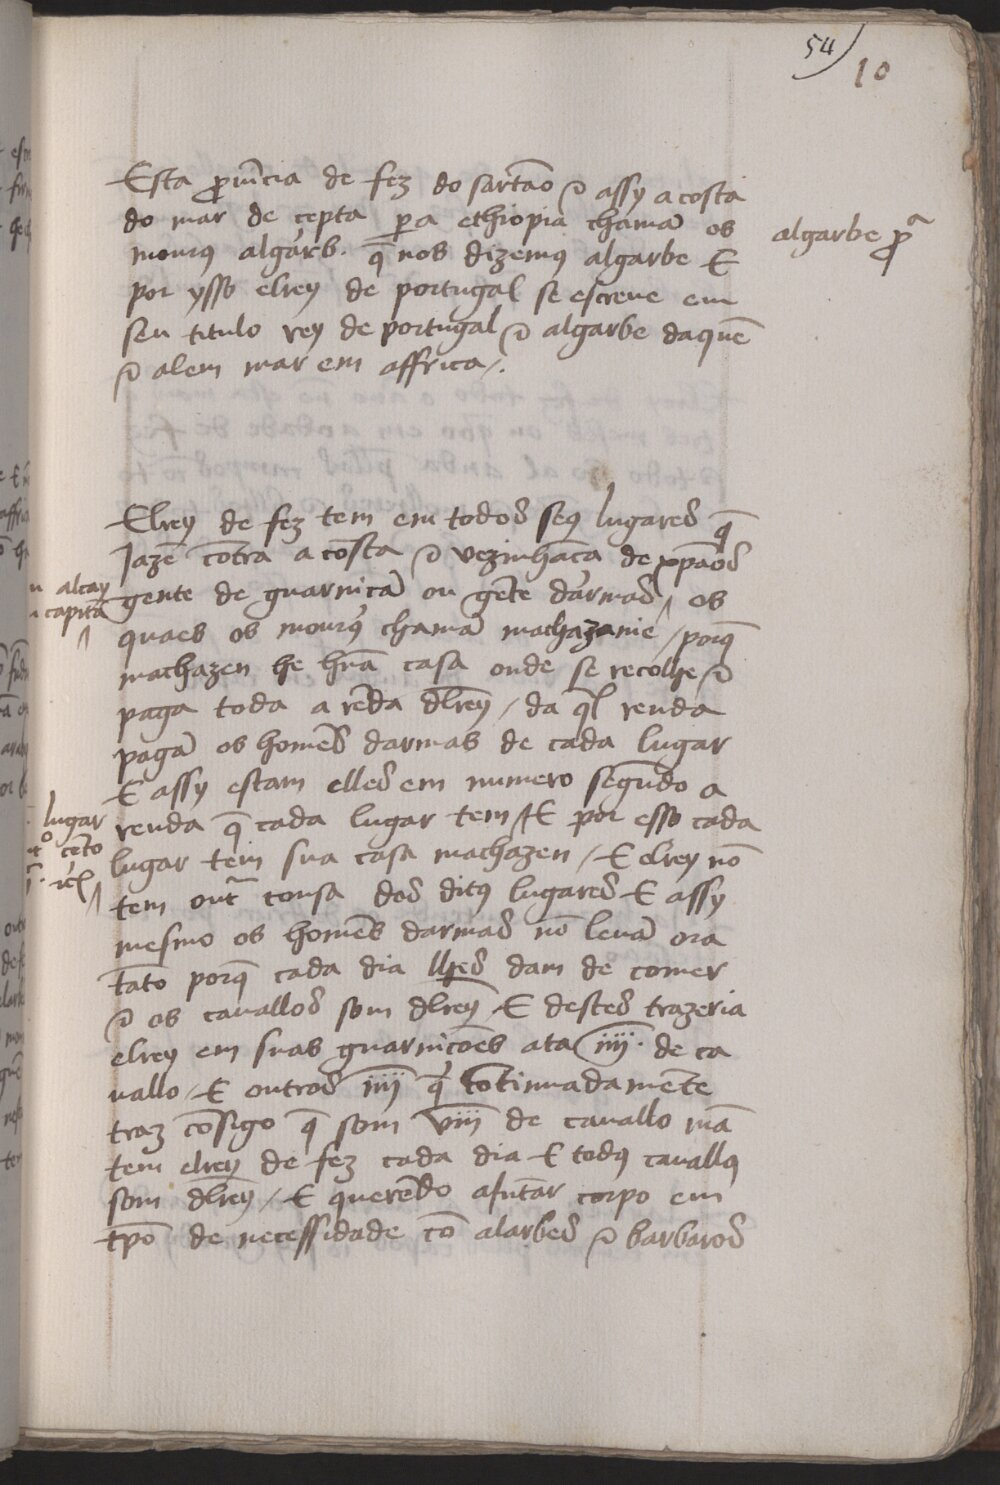 54
10
Esta ꝓuīcia de fez do sartaão ⁊ assy a costa
do mar de cepta ꝑa ethiopia chamã os
mourꝯ algarb. q̃ nos dizemꝯ algarbe E
por ysso elrey de portugal se escreue em
seu titulo rey de portugal ⁊ algarbe daquẽ
⁊ alem mar em affrica /.
algarbe ꝓᵃ
Elrey de fez tem em todos seꝯ lugares q̃
Jazẽ cõtra a costa ⁊ vezinhãca de xp̃aõs
gente de guarnicã ou gẽte darmas / os
quaes os mourꝯ chamã machazanie / porq̃
machazen he hũa casa onde se recolhe ⁊
paga toda a rẽda dl̃rey / da q̃l renda
pagã os homẽs darmas de cada lugar
E assy estam elles em numero segũdo a
renda q̃ cada lugar tem / E por esso cada
lugar tem sua casa machazen / E elrey nõ
tem outᷓ cousa dos ditꝯ lugares E assy
mesmo os homẽs darmas nõ leuã ora
tãto porq̃ cada dia lhes dam de comer
⁊ os cauallos som dl̃rey E destes trazeria
elrey em suas guarnicões ata iiij̅. de ca
uallo / E outros iiij̅ q̃ cõtinuadamẽte
traz cõsigo q̃ som viij̅ de cauallo mã
tem elrey de fez cada dia E todꝯ cauallꝯ
som dl̃rey / E querẽdo aiũtar corpo em
tp̃o de necessidade cõ alarbes ⁊ barbaros
alcay
capitã
lugar
cẽto